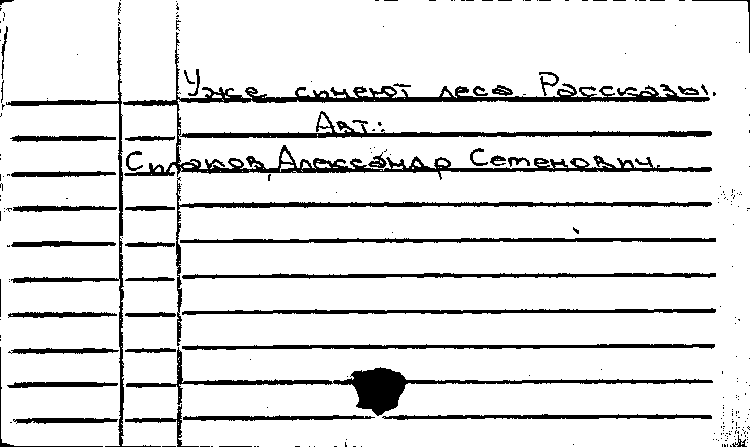 Уже синеют леса. Рассказы.
Авт.:
Силаков, Александр Семенович.